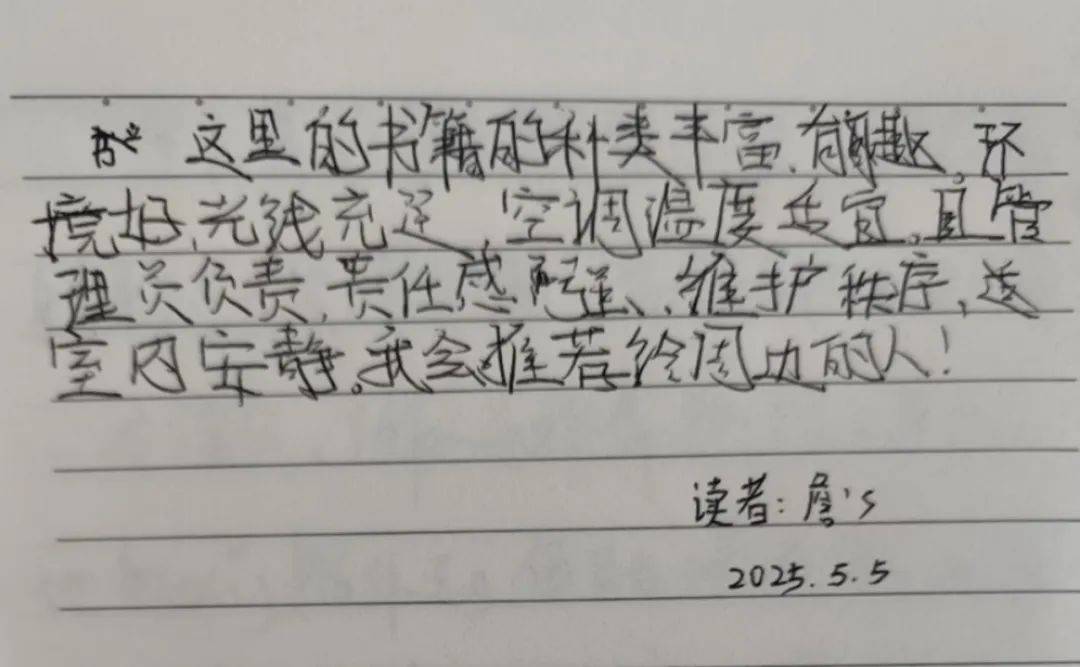 这里的书籍的种类丰富、有趣。环
境好、光线充足、空调温度适宜,且管
理员负责,责任感强、维护秩序,
室内安静。我会推荐给周边的人!
读者:詹's
2025.5.5